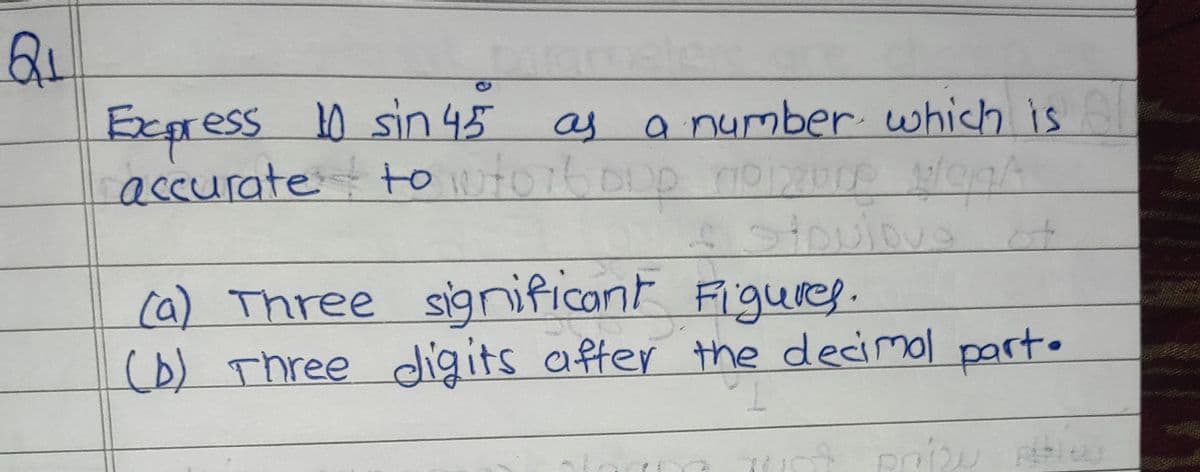 Q1
Express 10 sin 45° as a number which is
accurate to
(a) Three significant Figures.
(b) Three digits after the decimal part.